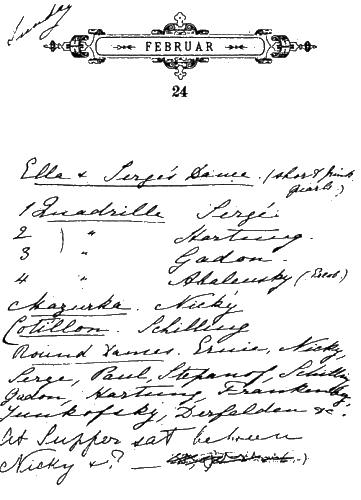 Sunday
FEBRUAR
24
Ella & Serge's Dance. (short pink
pearls.)
1 Quadrille Serge.
2 ) " Hartung.
3 " Gadon.
4 "
Mazurka. Nicky
Cotillon. Schilling
Round Dances. Ernie, Nicky,
Serge, Paul, Stepanof, Schilling
Gadon, Hartung,
Junkofsky, Derfelden &c.
At Supper sat between
Nicky & ? —